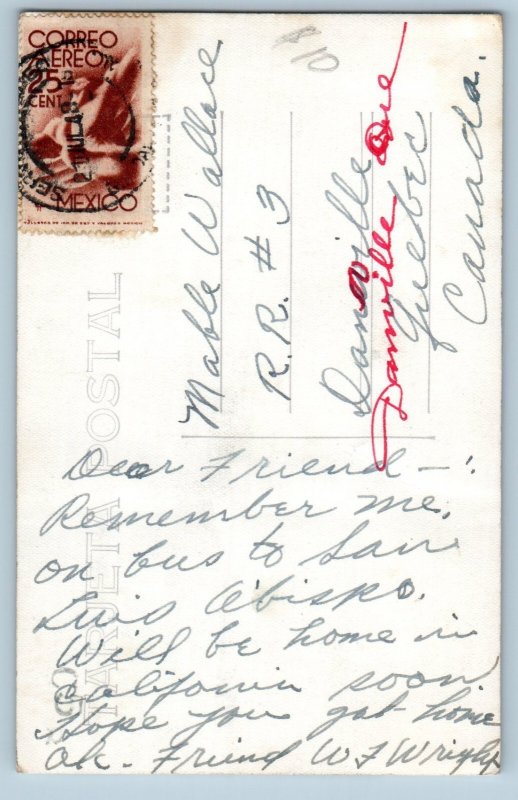 CORREO
AEREO
25
CENT
MEXICO
TARJETA POSTAL
Mable Wallace
R.R. # 3
Danville
Danville Que
Quebec
Canada.
Dear Friend -:
Remember me,
on bus to San
Luis Obispo.
Will be home in
California soon
Hope you got home
Ok. Friend W J Wright